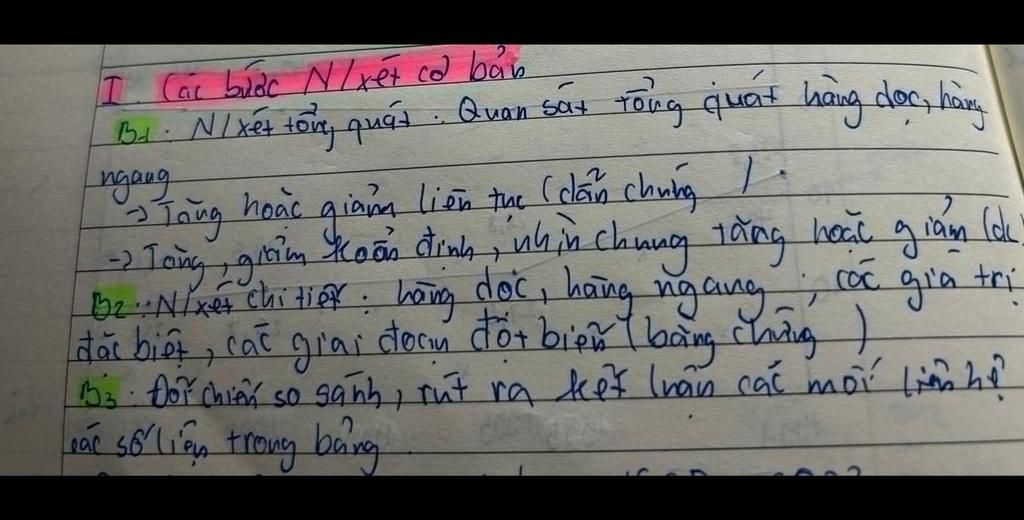 I. Các bước N/xét cơ bản
B1: N/xét tổng quát: Quan sát tổng quát hàng dọc, hàng
ngang
-> Tăng hoặc giảm liên tục (dẫn chứng )
-> Tăng, giảm koổn định, nhìn chung tăng hoặc giảm (dc
B2: N/xét chi tiết: hàng dọc, hàng ngang, các giá trị
đặc biệt, các giai đoạn đột biến (bằng chứng )
B3: Đối chiếu so sánh, rút ra kết luận các mối liên hệ
các số liệu trong bảng.